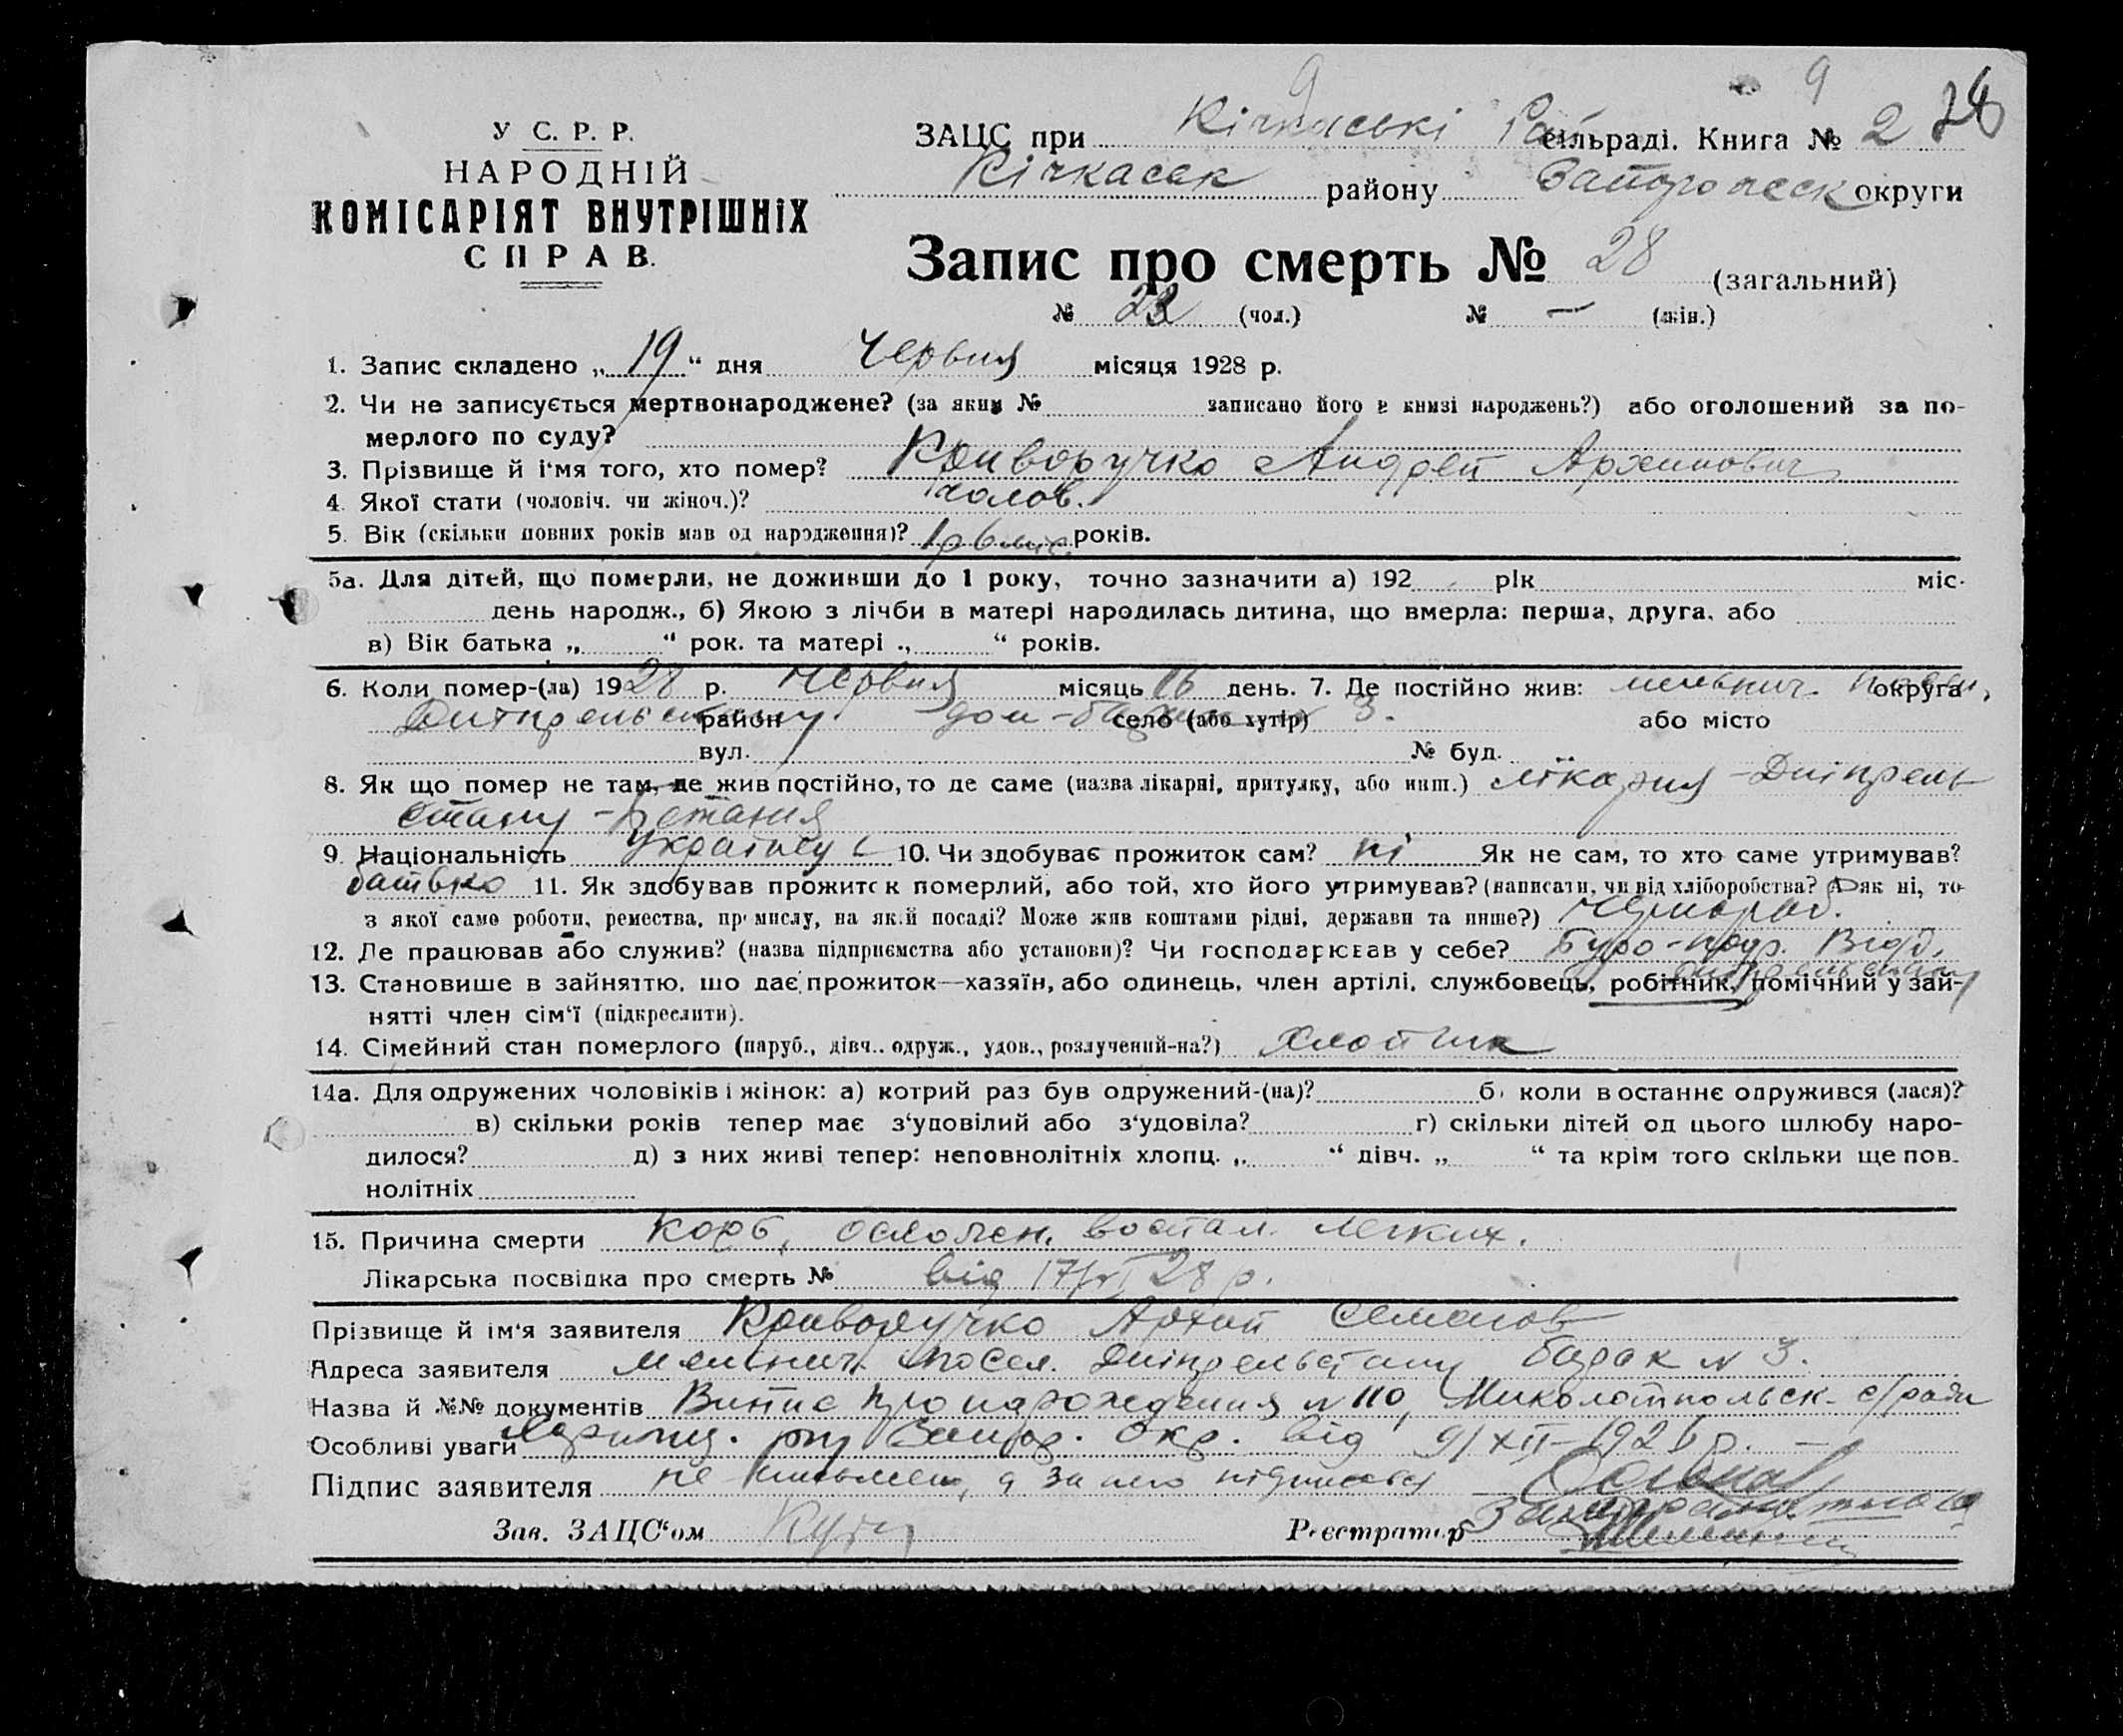 9 9
У С. Р. Р.
НАРОДНІЙ
КОМІСАРІЯТ ВНУТРІШНІХ
СПРАВ.
ЗАЦС при Кічкаські Рай сільраді. Книга № 2 28
Кічкаськ району Запорожск округи
Запис про смерть № 28 (загальний)
№ 23 (чол.) № — (жін.)
1. Запис складено „19“ дня Червня місяця 1928 р.
2. Чи не записується мертвонароджене? (за яким № записано його в книзі народжень?) або оголошений за по-
мерлого по суду?
3. Прізвище й і'мя того, хто помер? Криворучко Андрей Архипович
4. Якої стати (чоловіч. чи жіноч.)? чолов.
5. Вік (скільки повних років мав од народження)? 1р 6 міс. років.
5а. Для дітей, що померли, не доживши до 1 року, точно зазначити а) 192 рік міс.
день народж., б) Якою з лічби в матері народилась дитина, що вмерла: перша, друга, або
в) Вік батька „ “ рок. та матері „ “ років.
6. Коли помер-(ла) 1928 р. Червня місяць 16 день. 7. Де постійно жив: округа
район село (або хутір) 3. або місто
вул. № буд.
8. Як що помер не там, де жив постійно, то де саме (назва лікарні, притулку, або инш.) лікарня - Дніпрель
стану -
9. Національність 10. Чи здобуває прожиток сам? ні Як не сам, то хто саме утримував?
батько 11. Як здобував прожиток померлий, або той, хто його утримував? (написати, чи від хліборобства? А як ні, то
з якої само роботи, ремества, промислу, на якій посаді? Може жив коштами рідні, держави та инше?) Чорнораб.
12. Де працював або служив? (назва підприємства або установи)? Чи господарював у себе?
13. Становише в зайняттю, що дає прожиток—хазяїн, або одинець, член артілі, службовець, робітник, помічний у зай-
нятті член сім'ї (підкреслити).
14. Сімейний стан померлого (паруб., дівч.. одруж., удов., розлучений-на?) Хлопчик
14а. Для одружених чоловіків і жінок: а) котрий раз був одружений-(на)? б) коли в останнє одружився (лася)?
в) скільки років тепер має з'удовілий або з'удовіла? г) скільки дітей од цього шлюбу наро-
дилося? д) з них живі тепер: неповнолітніх хлопц. „ “ дівч. „ “ та крім того скільки ще пов-
нолітніх
15. Причина смерти корь, ослożен. воспал. легких.
Лікарська посвідка про смерть № від 17/VI 28 р.
Прізвище й ім'я заявителя Криворучко Архип Семенов
Адреса заявителя посел. Дніпрельстану барак № 3.
Назва й №№ документів Витис про народження № 110, Миколайпольск. с/ради
Особливі уваги Запор. Окр. від 9/XII-1926 р. —
Підпис заявителя не письмен, а за него підписався
Зав. ЗАЦС'ом Реєстратор